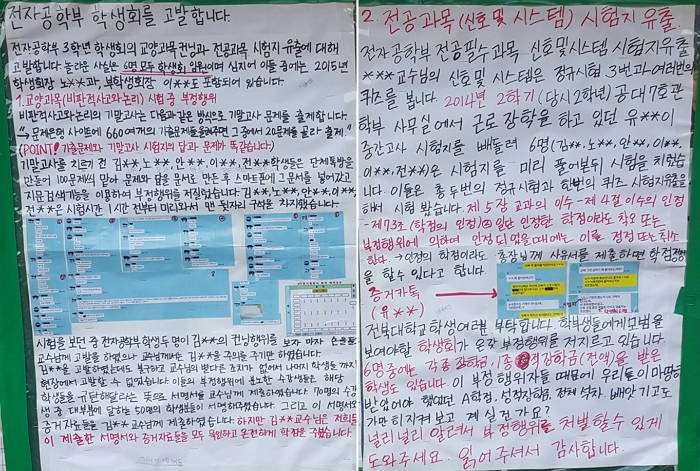 전자공학부 학생회를 고발합니다.
전자공학부 3학년 학생회의 교양과목 컨닝과 전공과목 시험지 유출에 대해
고발합니다. 놀라운 사실은 6명 모두 학생회 임원이며 심지어 이들 중에는 2015년
학생회장 노**과, 부학생회장 이**도 포함되어 있습니다.
1. 교양과목(비판적사고와논리) 시험 중 부정행위
비판적사고와논리의 기말고사는 다음과 같은 방식으로 기말고사 문제를 출제합니다.
"문제은행 사이트에 660여개의 기출문제들올려주면 그 중에서 20문제를 골라 출제"
(POINT! 기출문제와 기말고사 시험지의 답과 문제가 똑같습니다)
기말고사를 치르기 전 김**, 노**, 안**, 이**, 전**학생들은 단체톡방을
만들어 100문제씩 맡아 문제와 답을 문서로 만든 후 스마트폰에 그 문서를 넣어갔고
지문검색기능을 이용하여 부정행위를 저질렀습니다. 김**, 노**, 안**, 이**,
전**은 시험시간 1시간 전부터 미리와서 맨 뒷자리 구석을 차지했습니다.
시험을 보던 중 전자공학부 학생두 명이 김**의 컨닝행위를 보자 마자 손을들
교수님께 고발을 하였으나 교수님께서는 김**을 주의를 주기만 하였습니다.
김**을 고발하였는데도 불구하고 교수님의 별다른 조치가 없어서 나머지 학생들 까지
현장에서 고발할 수 없었습니다. 이들의 부정행위에 분노한 수강생들은 해당
학생들을 규탄해달라는 뜻으로 서명서를 교수님께 제출하였습니다. 70명의 수강
생 중 대부분에 달하는 50명의 학생들분이 서명하여주셨습니다. 그리고 이 서명서와
증거자료들을 김**교수님께 제출하였습니다. 하지만 김**교수님은 저희들
이 제출한 서명서와 증거자료들을 모두 묵인하고 온전하게 학점을 주셨습니다.
2 전공과목(신호 및 시스템) 시험지 유출.
전자공학부 전공필수과목 신호및시스템 시험지유출
***교수님의 신호 및 시스템은 정규시험 3번과 여러번의
퀴즈를 봅니다. 2014년 2학기(당시2학년) 공대7호관
학부 사무실에서 근로장학을 하고 있던 유**이
중간고사 시험지를 빼돌려 6명(김**, 노**, 안**, 이**,
이**, 전**)은 시험지를 미리 풀어본뒤 시험을 치렀습
니다. 이들은 총 두번의 정규시험과 한번의 퀴즈 시험지유출을
하여 시험 봤습니다. 제5장 교과의 이수-제4절 이수의 인정
-제73조(학점의 인정)② 일단 인정한 학점이라도 착오 또는
부정행위에 의하여 인정되었을 때에는 이를 정정 또는 취소
한다. → 인정의 학점이라도 총장님께 사유서를 제출하면 학점정정
을 할수 있다고 합니다.
증거카톡
(유**)
전북대학교 학생여러분 부탁합니다. 학부생들에게 모범을
보여야할 학생회가 온갖 부정행위를 저지르고 있습니다
6명중에는 각종 장학금, 1종 성적장학금(전액)을 받은
학생도 있습니다. 이 부정행위자들 때문에 우리들이 마땅히
받았어야 했었던 A학점, 성적장학금, 전체 석차. 빼앗기고도
가만히 지켜보고 계실건가요?
널리널리 알려서 부정행위를 처벌할수 있게
도와주세요. 읽어주셔서 감사합니다.